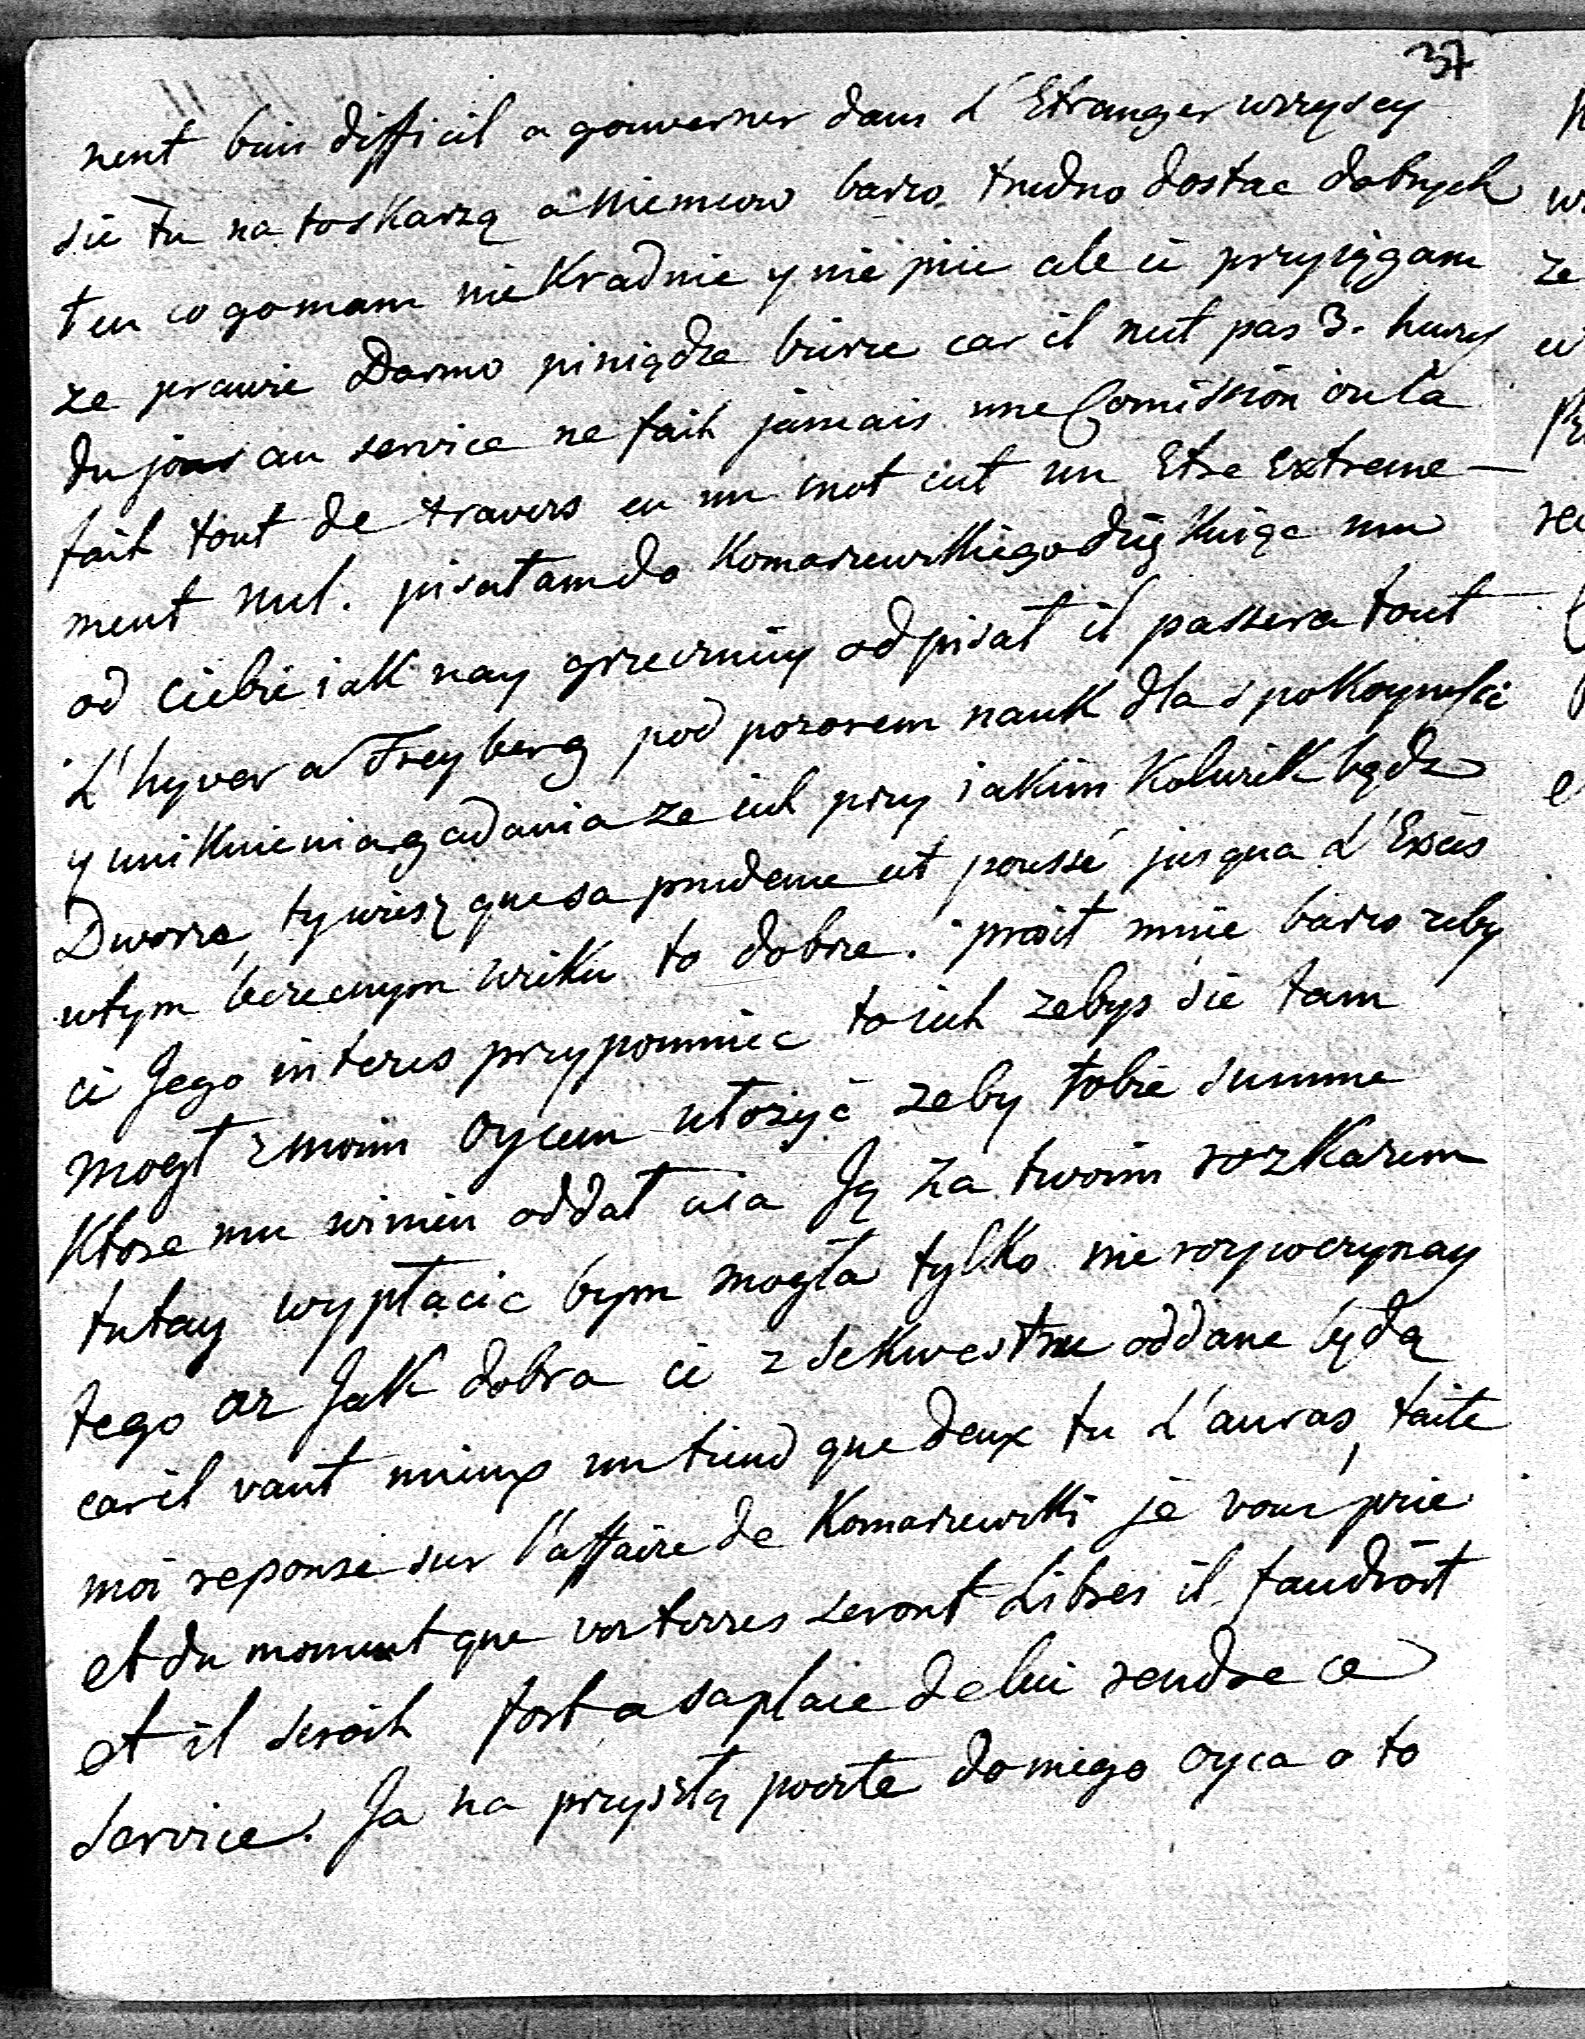 37
nent bien difficil a gouverner dans L'Etranger wszyscy
sie tu na to skarzą a Niemcow barzo trudno dostac dobrych
ten co go mam nie Kradnie y nie pije ale ci przysięgam
ze prawie Darmo piniądze bierze car il n'est pas 3. heures
du jour au service ne fait jamais une Comission ou la
fait tout de travers en un mot c'est un Etre Extreme-
ment nul. pisałam do Komarzewskiego dzięKuiąc mu
od ciebie iak nay grzeczniey odpisał il passera tout
L'hyver a Freyberg pod pozorem nauk dla spokoynosci
y uniKnienia gadania ze iest przy iakim Kolwiek bądz
Dworze, ty wiesz que sa prudence est poussé jusqua L'Exces
w tym wieku to dobre. prosił mnie barzo zeby
ci Jego interes przypomniec to iest zebys sie tam
mogł z moim Oycem ułozyć zeby tobie summe
Ktore mu winien oddał a ia Ją za twoim rozKazem
tutay wypłacic bym mogła tylko nie rozpoczynay
tego az Jak dobra ci z seKwestru oddane będą
car il vaut mieux un tiend que deux tu L'auras, faite
moi reponse sur l'affaire de Komarzewski je vous prie
et du moment que vos terres seront Libres il faudroit
et il seroit fort a sa place de lui rendre ce
Service. Ja na przyszłą poczte do mego Oyca o to